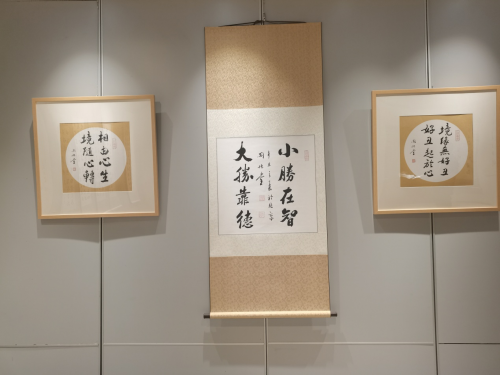 相由心生
境隨心轉
小勝在智
大勝靠德
境緣無好丑
好丑起於心